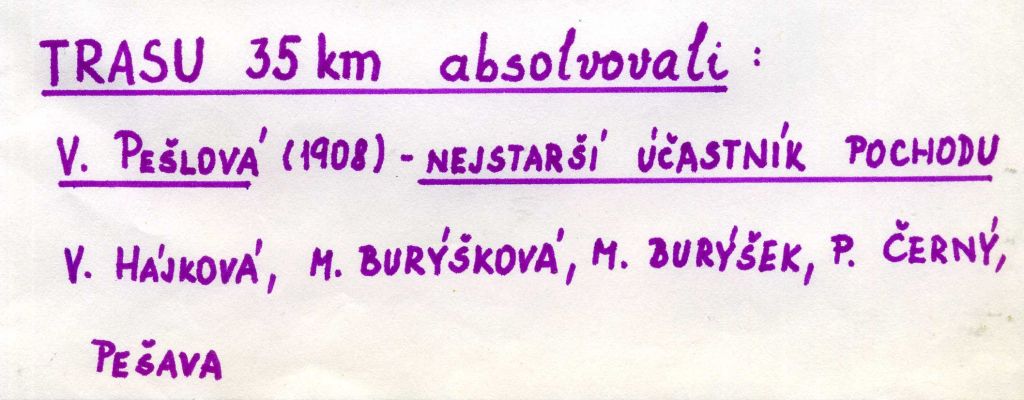 TRASU 35 km absolvovali:
V. PEŠLOVÁ (1908) - NEJSTARŠÍ ÚČASTNÍK POCHODU
V. HÁJKOVÁ, M. BURÝŠKOVÁ, M. BURÝŠEK, P. ČERNÝ,
PEŠAVA